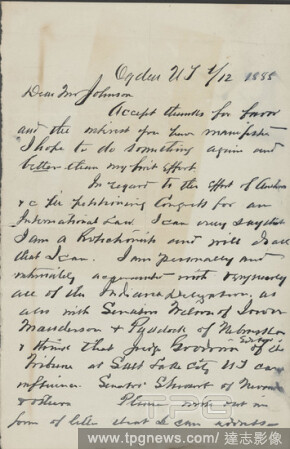 Ogden UT 1/12 1888
Dear Mr Johnson
Accept thanks for favor
and the interest you have manifested
I hope to do something again and
better than my first effort
In regard to the effort of Authors
& c in petitioning Congress for an
International Law. I can only say that
I am a Protectionist and will do all
that I can. I am personally and
intimately acquainted with very nearly
all of the Indiana delegation, as
also with Senators Wilson of Iowa
Manderson & Paddock of Nebraska
& think that Judge Goodwin Editor of the
Tribune at Salt Lake City UT can
influence Senator Stewart of Nevada
& others Please write out in
form of letter that I can address
TPG
www.tpgnews.com 達志影像